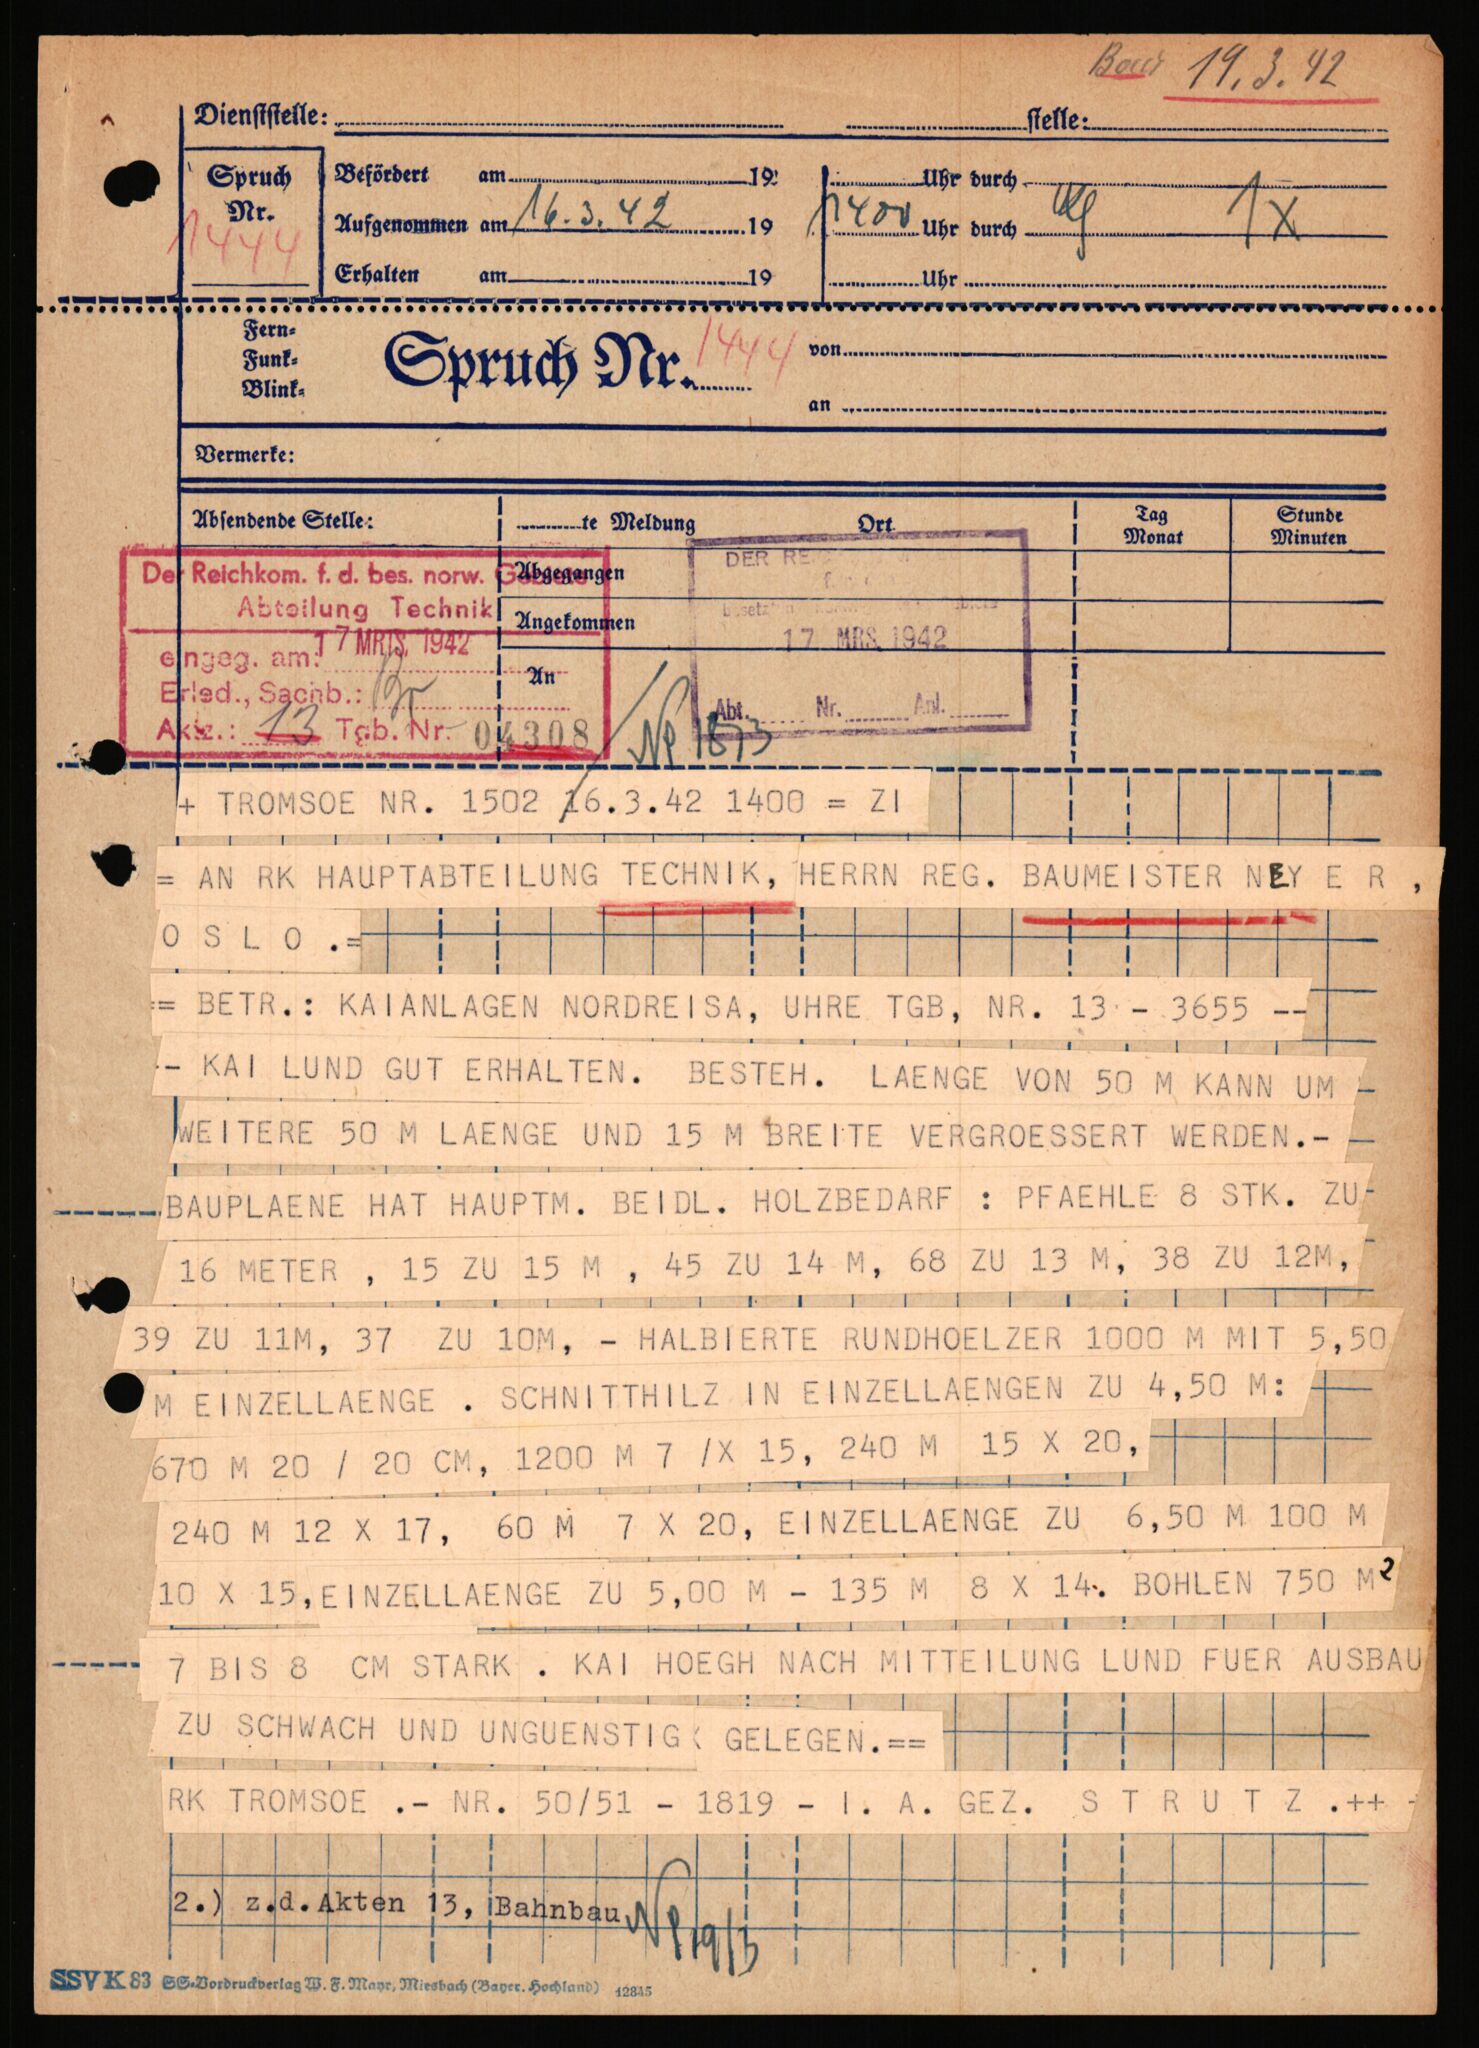 19.3.42
Dienststelle: stelle:
Spruch Nr. 1444
Befördert am 19 Uhr durch
Aufgenommen am 16.3.42 19 1400 Uhr durch 1X
Erhalten am 19 Uhr
Fern-
Funk-
Blink-
Spruch Nr. 1444
von
an
Vermerke:
Absendende Stelle: te Meldung Ort Tag Monat Stunde Minuten
Abgegangen
Angekommen
An
Der Reichkom. f. d. bes. norw. Gebiete
Abteilung Technik
eingeg. am: 17 MRTS. 1942
Erled., Sachb.:
Aktz.: 13 Tgb. Nr. 04308
DER RE
besetzten
17 MRS. 1942
Abt. Nr. Anl.
+ TROMSOE NR. 1502 16.3.42 1400 = ZI
= AN RK HAUPTABTEILUNG TECHNIK, HERRN REG. BAUMEISTER NEY E R ,
O S L O .=
= BETR.: KAIANLAGEN NORDREISA, UHRE TGB, NR. 13 - 3655 --
-- KAI LUND GUT ERHALTEN. BESTEH. LAENGE VON 50 M KANN UM
WEITERE 50 M LAENGE UND 15 M BREITE VERGROESSERT WERDEN.-
BAUPLAENE HAT HAUPTM. BEIDL. HOLZBEDARF : PFAEHLE 8 STK. ZU
16 METER , 15 ZU 15 M , 45 ZU 14 M, 68 ZU 13 M, 38 ZU 12M,
39 ZU 11M, 37 ZU 10M, - HALBIERTE RUNDHOELZER 1000 M MIT 5,50
M EINZELLAENGE . SCHNITTHILZ IN EINZELLAENGEN ZU 4,50 M:
670 M 20 / 20 CM, 1200 M 7 /X 15, 240 M 15 X 20,
240 M 12 X 17, 60 M 7 X 20, EINZELLAENGE ZU 6,50 M 100 M
10 X 15, EINZELLAENGE ZU 5,00 M - 135 M 8 X 14. BOHLEN 750 M²
7 BIS 8 CM STARK . KAI HOEGH NACH MITTEILUNG LUND FUER AUSBAU
ZU SCHWACH UND UNGUENSTIG GELEGEN.==
RK TROMSOE .- NR. 50/51 - 1819 - I. A. GEZ. S T R U T Z .++
2.) z.d.Akten 13, Bahnbau
19/3
SSV K 83 SS-Vordruckverlag W. F. Mayr, Miesbach (Bayer. Hochland) 12845